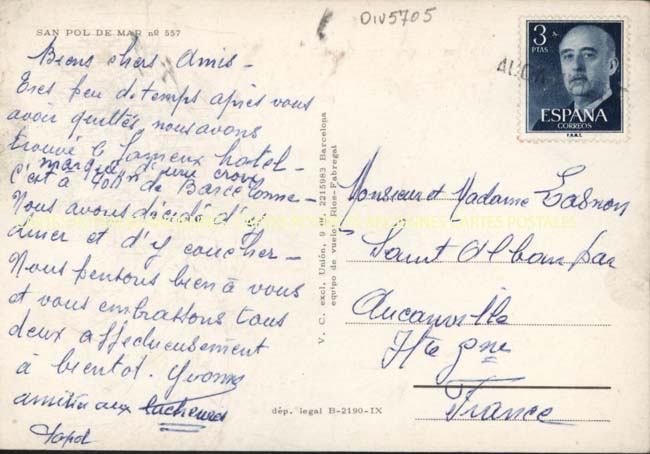 SAN POL DE MAR nº 557
DIV5705
Biens chers Amis -
Tres peu de temps après vous
avoir quittés, nous avons
trouvé le fameux hotel -
marqué d'une croix
C'est à 40 Km de Barcelonne -
Nous avons décidé d'y
diner et d'y coucher -
Nous pensons bien à vous
et vous embrassons tous
deux affectueusement
à bientot. Yvonne
amitiés aux
V. C. excl. Unión, 9 2215983 Barcelona
equipo de vuelo: Ríos-Fabregat
dép. legal B-2190-IX
3 PTAS
ESPAÑA
CORREOS
F.N.M.T.
Monsieur et Madame Lasnon
Saint Alban par
Aucamville
Hte Gne
France
CARTES POSTALES ANCIENNES CARTES POSTALES